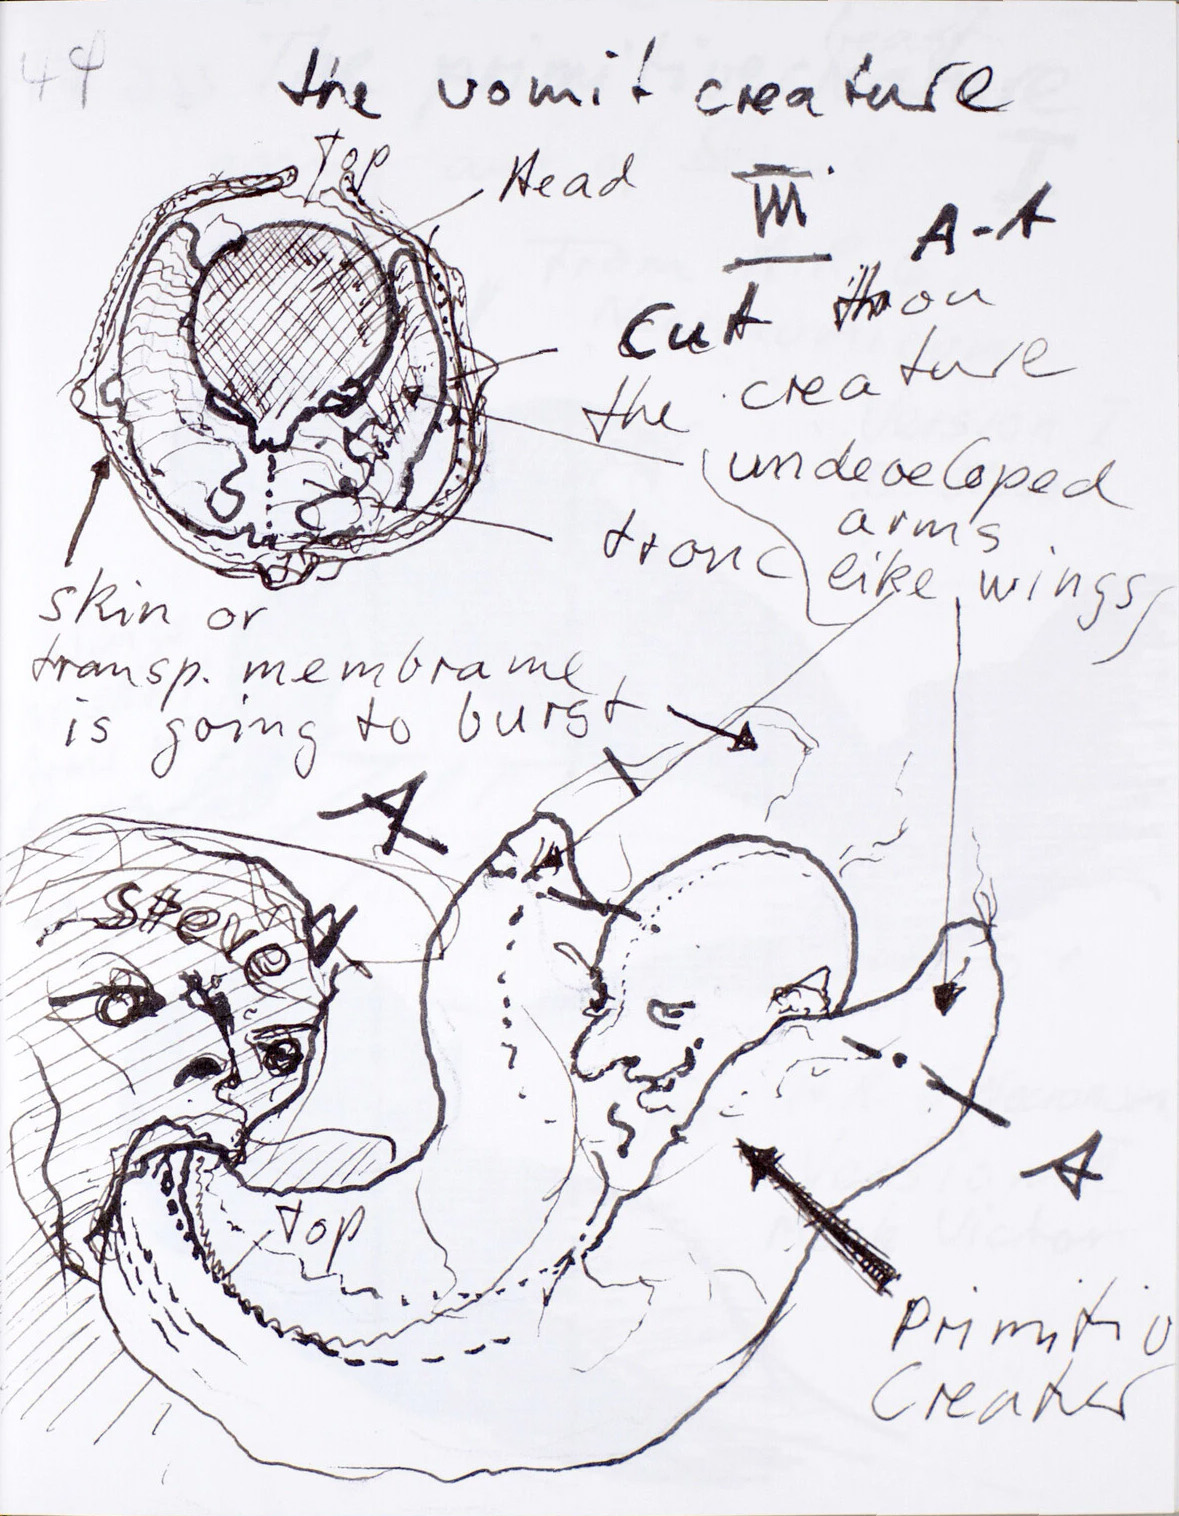 44
the vomit creature
Top
Head
III.
A-A
Cut throu
the creature
undeveloped
arms
like wings
tronc
skin or
transp. membrame
is going to burst
A
Steve
top
A
Primitiv
Creatur